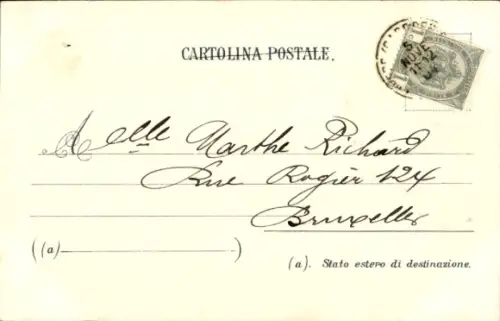 CARTOLINA POSTALE.
5
NOVE
Melle Marthe Richard
Rue Rogier 124
Bruxelles
((a)
)
(a). Stato estero di destinazione.